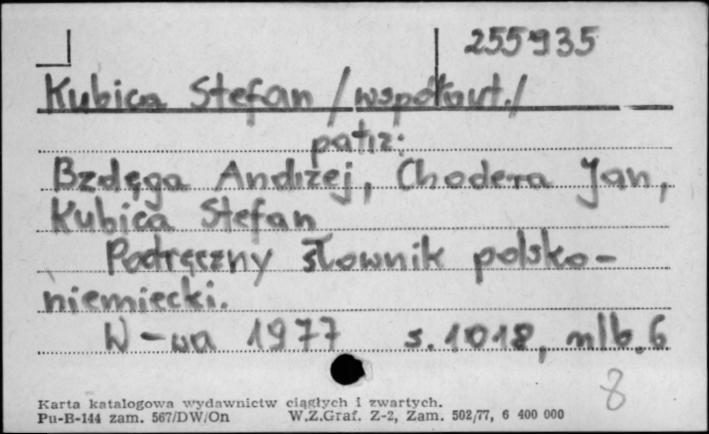 255935
Kubica Stefan /współaut./
patrz:
Bzdęga Andrzej, Chodera Jan,
Kubica Stefan
Podręczny słownik polsko-
niemiecki.
W-wa 1977 s. 1018, nlb. 6
8
Karta katalogowa wydawnictw ciągłych i zwartych.
Pu-B-144 zam. 567/DW/On W.Z.Graf. Z-2, Zam. 502/77, 6 400 000